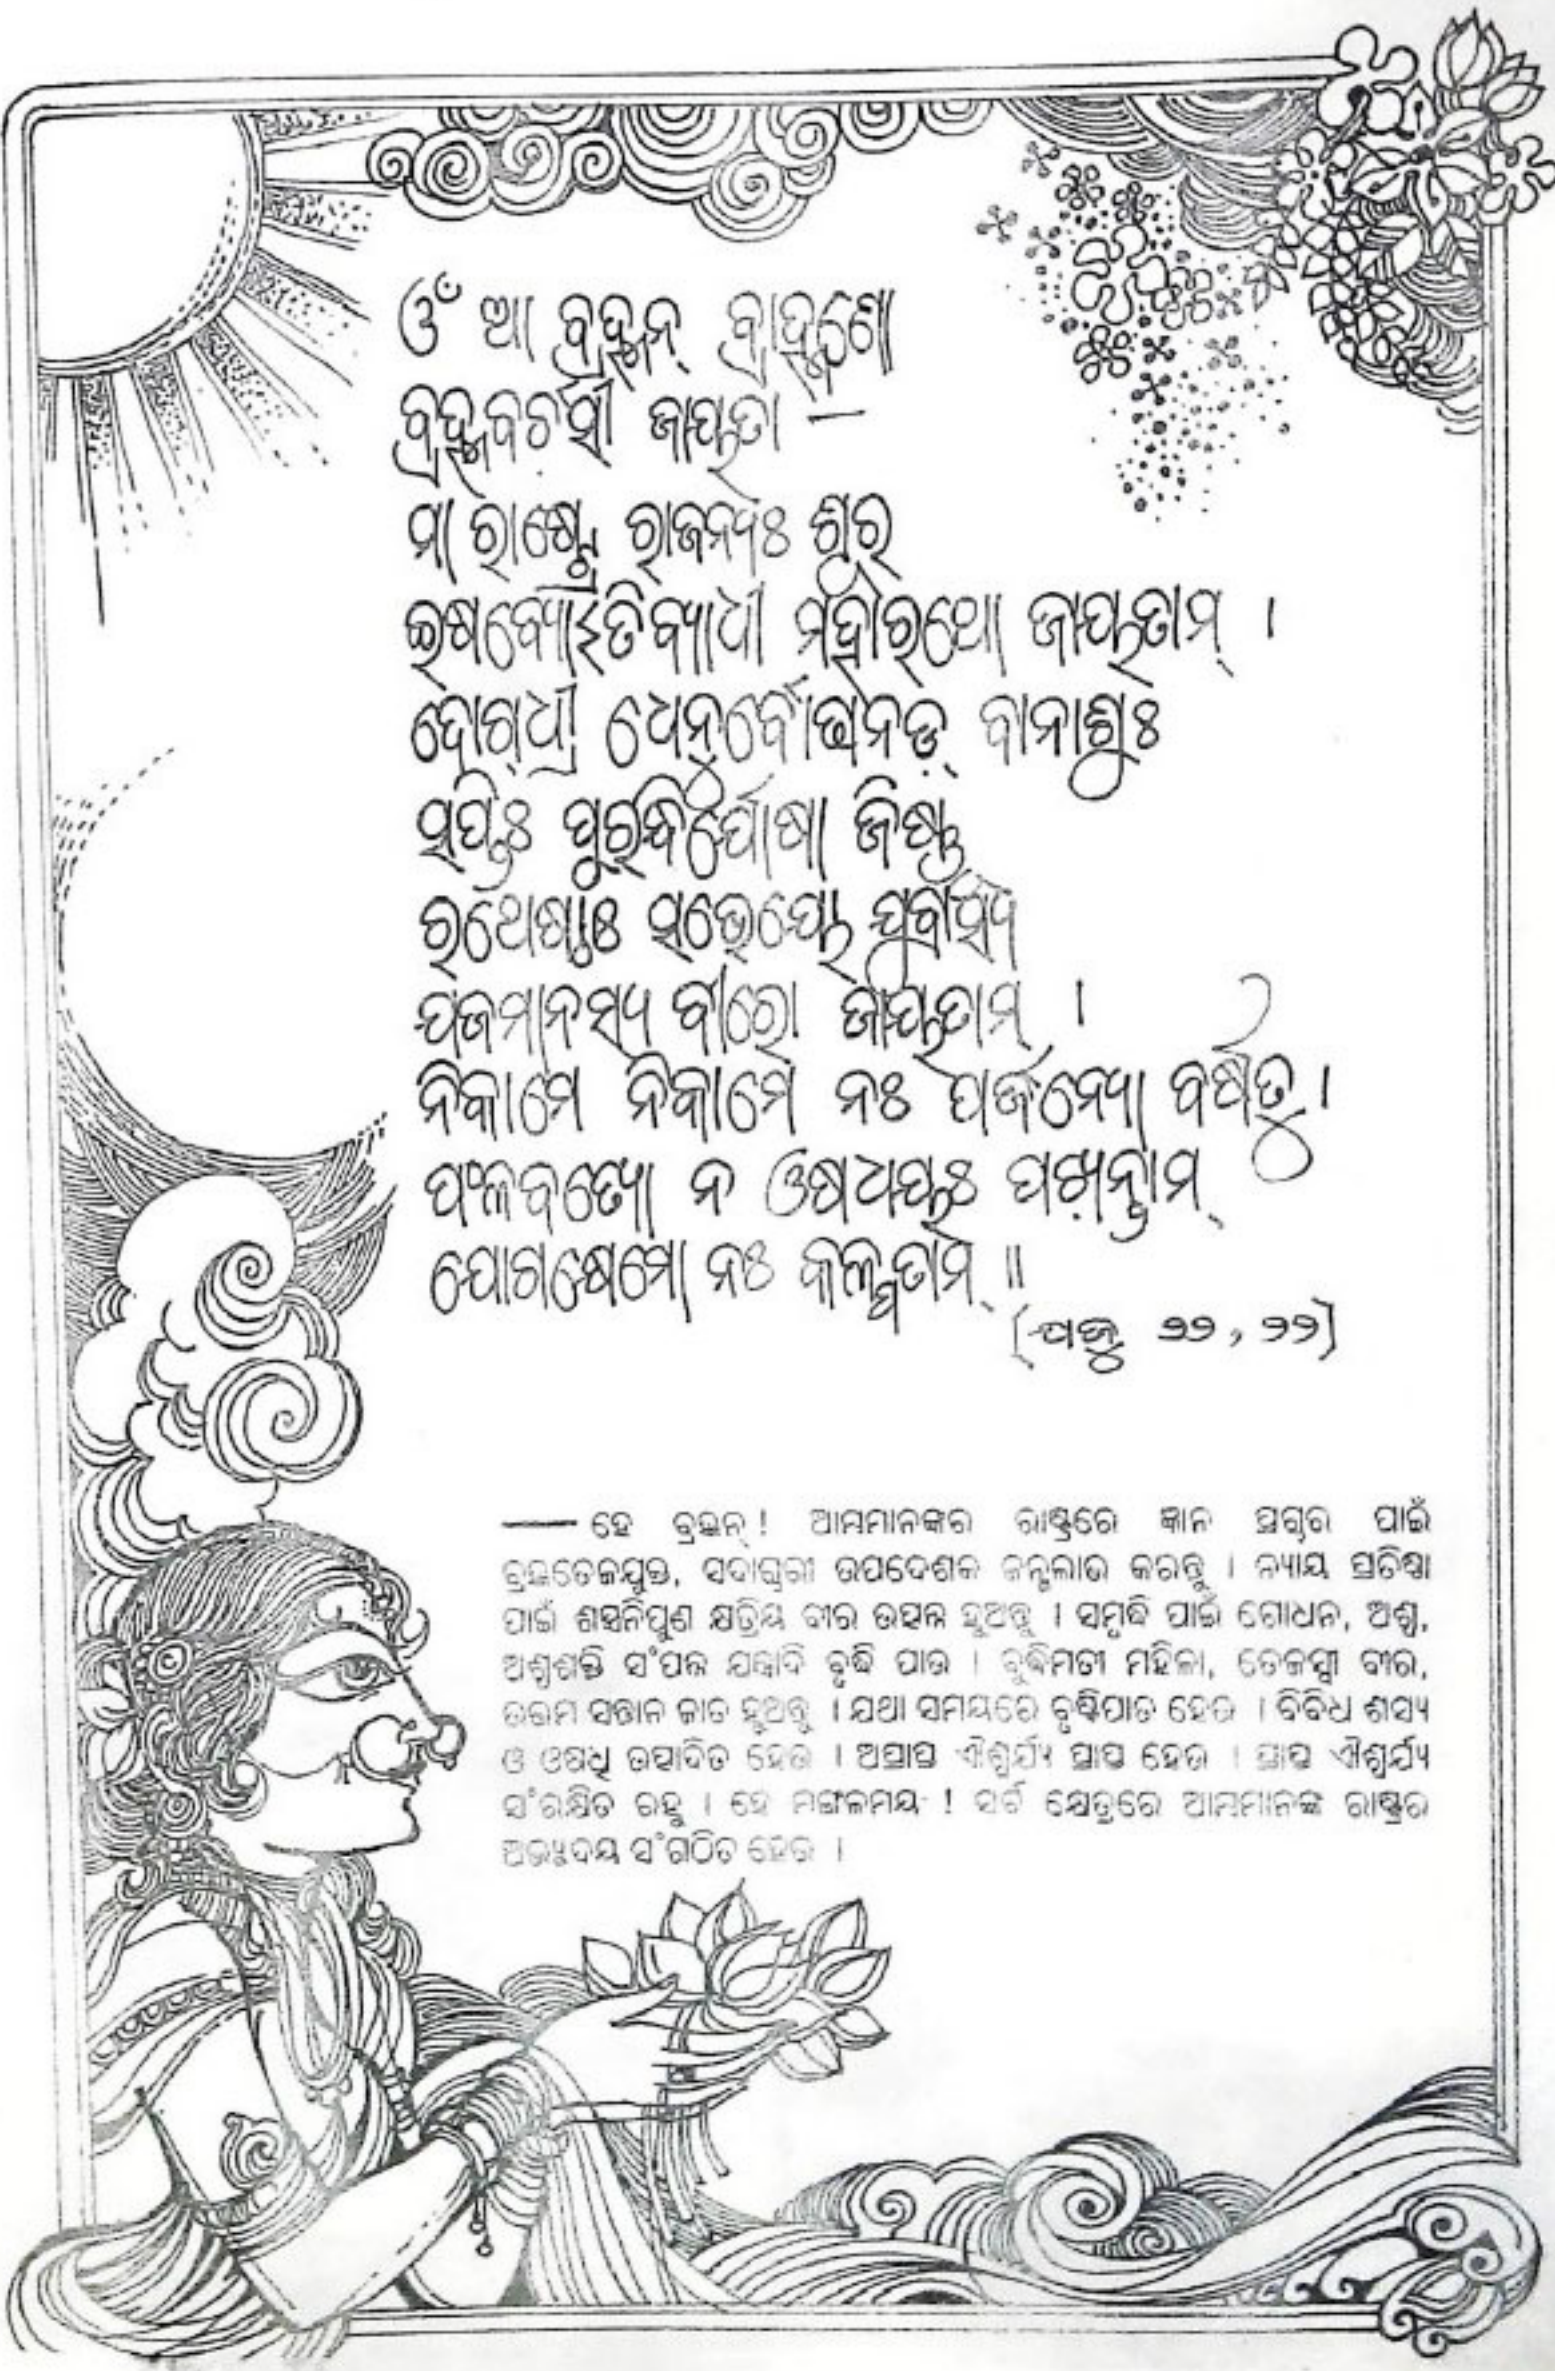 ଓଁ ଆ ବ୍ରହ୍ମନ୍ ବ୍ରାହ୍ମଣୋ
ବ୍ରହ୍ମବର୍ଚସୀ ଜାୟତା —
ମା ରାଷ୍ଟ୍ରେ ରାଜନ୍ୟଃ ଶୂର
ଇଷବ୍ୟୋଽତିବ୍ୟାଧୀ ମହାରଥୋ ଜାୟତାମ୍ ।
ଦୋଗ୍‌ଧ୍ରୀ ଧେନୁର୍ବୋଢାନଡ଼୍ ବାନାଶୁଃ
ସପ୍ତିଃ ପୁରନ୍ଧିର୍ଯୋଷା ଜିଷ୍ଣୁ
ରଥେଷ୍ଠାଃ ସଭେୟୋ ଯୁବାସ୍ୟ
ଯଜମାନସ୍ୟ ବୀରୋ ଜାୟତାମ୍ ।
ନିକାମେ ନିକାମେ ନଃ ପର୍ଜନ୍ୟୋ ବର୍ଷତୁ ।
ଫଳବତ୍ୟୋ ନ ଓଷଧୟଃ ପଖ଼ନ୍ତାମ୍
ଯୋଗକ୍ଷେମୋ ନଃ କଳ୍ପତାମ୍ ॥
(ଯଜୁ ୨୨, ୨୨)
— ହେ ବ୍ରହ୍ମନ୍ ! ଆମମାନଙ୍କର ରାଷ୍ଟ୍ରରେ ଜ୍ଞାନ ପ୍ରସାର ପାଇଁ
ବ୍ରହ୍ମତେଜଯୁକ୍ତ, ସଦାଚାରୀ ଉପଦେଶକ ଜନ୍ମଲାଭ କରନ୍ତୁ । ନ୍ୟାୟ ପ୍ରତିଷ୍ଠା
ପାଇଁ ଶସ୍ତ୍ରନିପୁଣ କ୍ଷତ୍ରିୟ ବୀର ଉତ୍ପନ୍ନ ହୁଅନ୍ତୁ । ସମୃଦ୍ଧି ପାଇଁ ଗୋଧନ, ଅଶ୍ୱ,
ଅଶ୍ୱଶକ୍ତି ସଂପନ୍ନ ଯନ୍ତ୍ରାଦି ବୃଦ୍ଧି ପାଉ । ବୁଦ୍ଧିମତୀ ମହିଳା, ତେଜସ୍ୱୀ ବୀର,
ଉତ୍ତମ ସନ୍ତାନ ଜାତ ହୁଅନ୍ତୁ । ଯଥା ସମୟରେ ବୃଷ୍ଟିପାତ ହେଉ । ବିବିଧ ଶସ୍ୟ
ଓ ଓଷଧି ଉତ୍ପାଦିତ ହେଉ । ଅପ୍ରାପ୍ତ ଐଶ୍ୱର୍ଯ୍ୟ ପ୍ରାପ୍ତ ହେଉ । ପ୍ରାପ୍ତ ଐଶ୍ୱର୍ଯ୍ୟ
ସଂରକ୍ଷିତ ରହୁ । ହେ ମଙ୍ଗଳମୟ ! ସର୍ବ କ୍ଷେତ୍ରରେ ଆମମାନଙ୍କ ରାଷ୍ଟ୍ରର
ଅଭ୍ୟୁଦୟ ସଂଗଠିତ ହେଉ ।